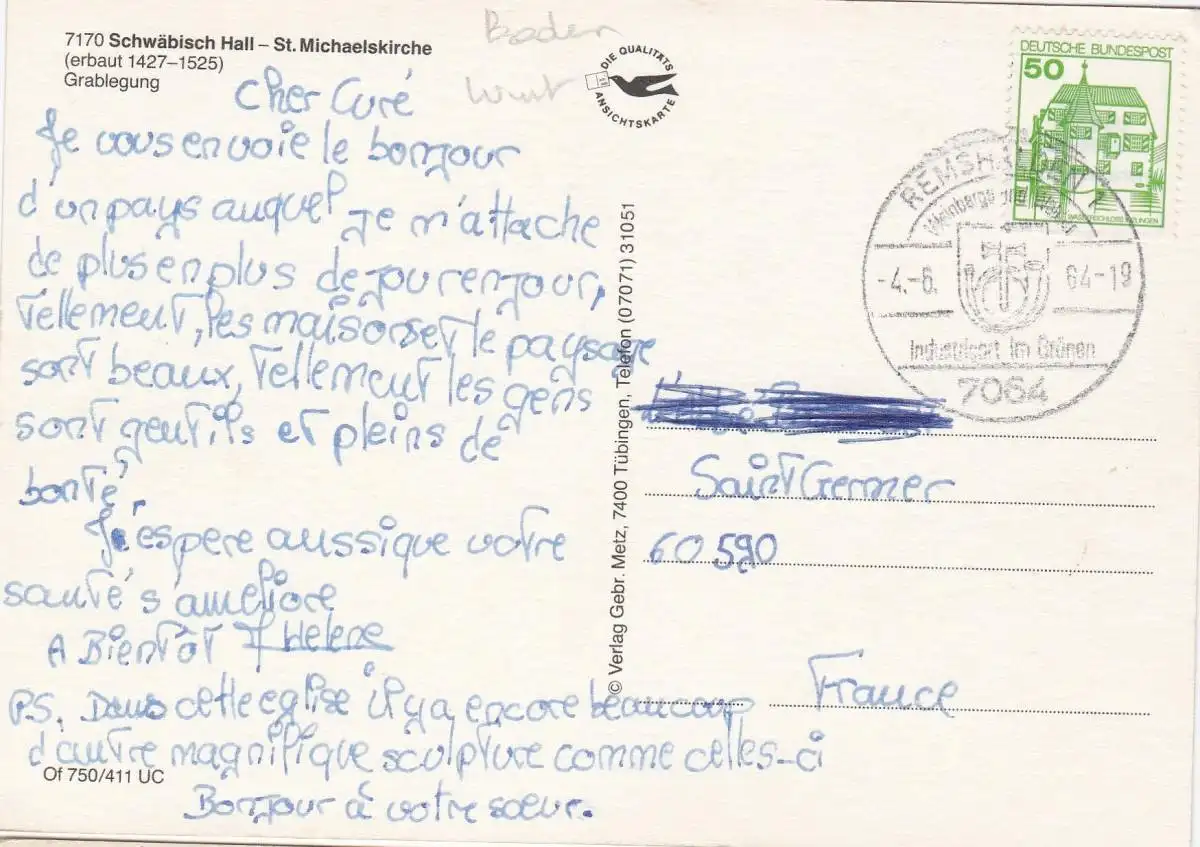 7170 Schwäbisch Hall – St. Michaelskirche
(erbaut 1427–1525)
Grablegung
Baden
Wurt
DIE QUALITÄTS
ANSICHTSKARTE
DEUTSCHE BUNDESPOST
50
WASSERSCHLOSS INZLINGEN
REMSHALDEN 1
Weinberge und
-4.-6. 84-19
Industrieort im Grünen
7064
Cher Curé
Je vous envoie le bonjour
d'un pays auquel je m'attache
de plus en plus de jour en jour,
tellement, les maisons et le paysage
sont beaux, tellement les gens
sont gentils et pleins de
bonté.
J'espere aussi que votre
santé s'améliore
A Bientôt Helene
PS. Dans cette eglise il y a encore beaucoup
d'autre magnifique sculpture comme celles-ci
Bonjour à votre soeur.
Of 750/411 UC
© Verlag Gebr. Metz, 7400 Tübingen, Telefon (07071) 31051
Saint Germer
60 590
France